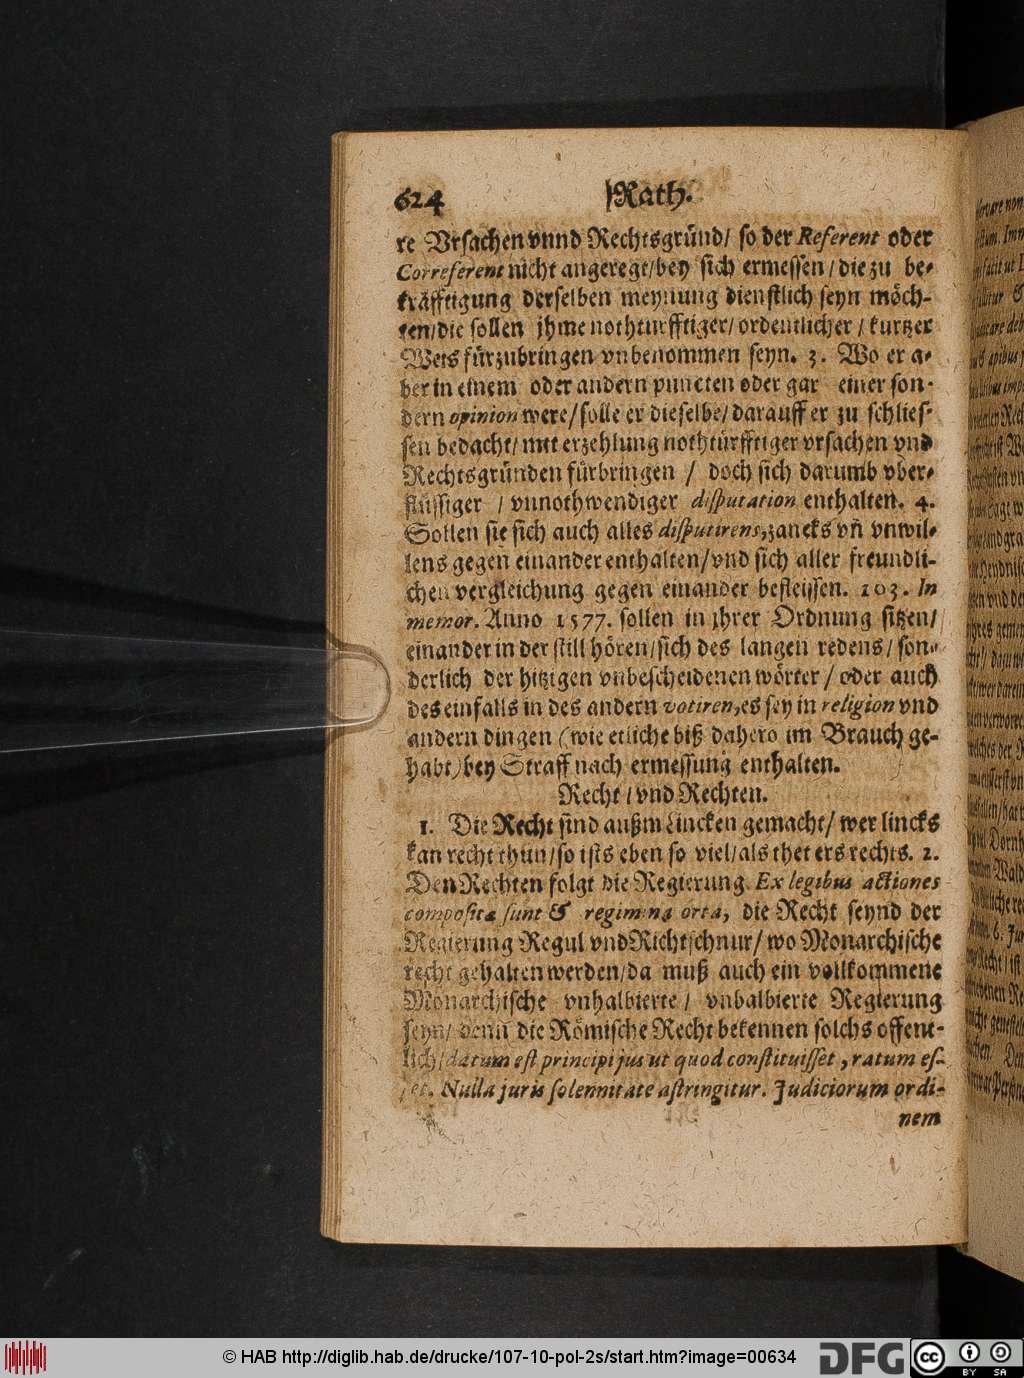 624 Rath.
re Vrsachen vnnd Rechtsgründ/ so der Referent oder
Correferent nicht angeregt/bey sich ermessen/die zu be-
kräfftigung derselben meynung dienstlich seyn möch-
ten/die sollen jhme nothturfftiger/ordentlicher/kurtzer
Weis fürzubringen vnbenommen seyn. 3. Wo er a-
ber in einem oder andern puncten oder gar einer son-
dern opinion were/solle er dieselbe/darauff er zu schlies-
sen bedacht/mit erzehlung nothtürfftiger vrsachen vnd
Rechtsgründen fürbringen / doch sich darumb vber-
flüssiger / vnnothwendiger disputation enthalten. 4.
Sollen sie sich auch alles disputirens, zancks vñ vnwil-
lens gegen einander enthalten/vnd sich aller freundli-
chen vergleichung gegen einander befleissen. 103. In
memor. Anno 1577. sollen in jhrer Ordnung sitzen/
einander in der still hören/sich des langen redens/son-
derlich der hitzigen vnbescheidenen wörter/oder auch
des einfalls in des andern votiren, es sey in religion vnd
andern dingen (wie etliche biß dahero im Brauch ge-
habt) bey Straff nach ermessung enthalten.
Recht/vnd Rechten.
1. Die Recht sind außm Lincken gemacht/wer lincks
kan recht thun/so ists eben so viel/als thet ers rechts. 2.
Den Rechten folgt die Regierung. Ex legibus actiones
compositæ sunt & regimina orta, die Recht seynd der
Regierung Regul vnd Richtschnur/wo Monarchische
recht gehalten werden/da muß auch ein vollkommene
Monarchische vnhalbierte/ vnbalbierte Regierung
seyn/denn die Römische Recht bekennen solchs offent-
lich/datum est principi jus ut quod constituisset, ratum es-
set. Nulla juris solennitate astringitur. Judiciorum ordi-
nem
© HAB http://diglib.hab.de/drucke/107-10-pol-2s/start.htm?image=00634
DFG
cc
BY SA